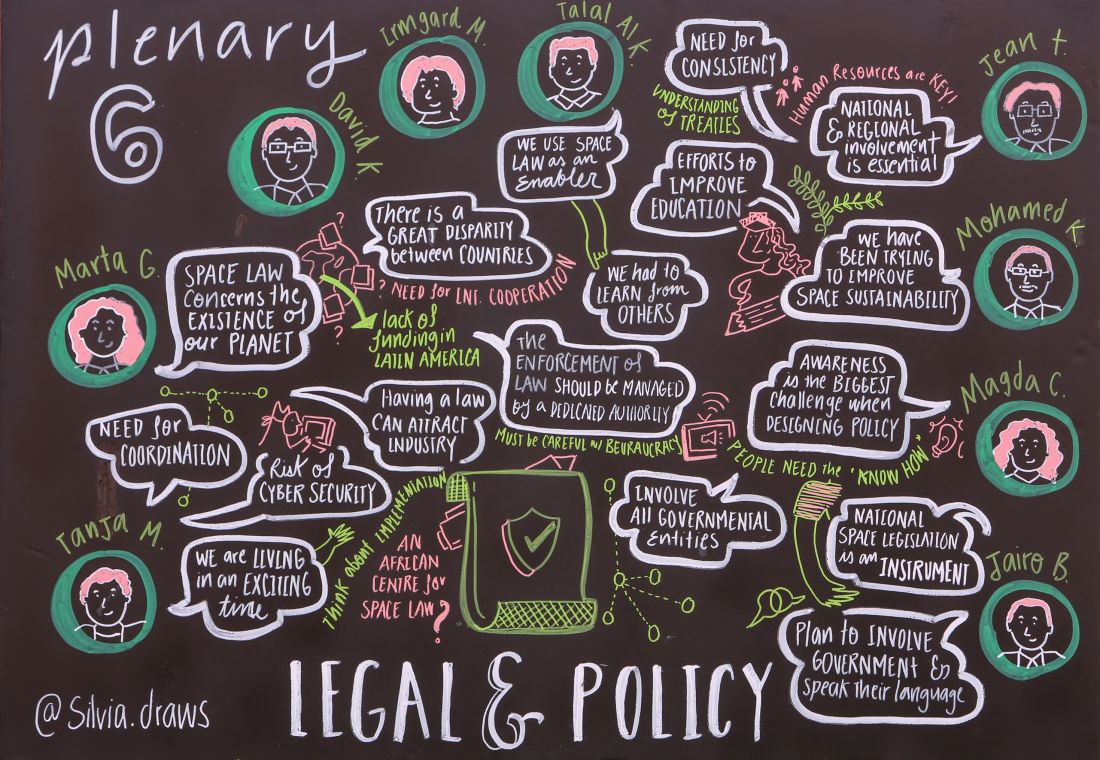 plenary
6
David K
Irmgard M.
Talal Al K.
Jean T.
NEED for
CONSISTENCY
UNDERSTANDING
of TREATIES
HUMAN RESOURCES ARE KEY!
NATIONAL
& REGIONAL
involvement
is essential
WE USE SPACE
LAW as an
Enabler
EFFORTS to
IMPROVE
EDUCATION
There is a
GREAT DISPARITY
between COUNTRIES
? NEED for INT. COOPERATION
WE HAD to
LEARN from
OTHERS
Mohamed K
WE HAVE
BEEN TRYING
TO IMPROVE
SPACE SUSTAINABILITY
Marta G.
SPACE LAW
Concerns the
EXISTENCE of
our PLANET
lack of
funding in
LATIN AMERICA
THE
ENFORCEMENT of
LAW SHOULD BE MANAGED
by a DEDICATED AUTHORITY
MUST BE CAREFUL w/ BEURAUCRACY
AWARENESS
is the BIGGEST
challenge when
DESIGNING POLICY
Magda C.
PEOPLE NEED the "KNOW HOW"
Having a law
CAN ATTRACT
INDUSTRY
NEED for
COORDINATION
Risk of
CYBER SECURITY
Tanja M.
WE are LIVING
in an EXCITING
time
THINK about IMPLEMENTATION
AN
AFRICAN
CENTRE for
SPACE LAW?
INVOLVE
All GOVERNMENTAL
Entities
NATIONAL
SPACE LEGISLATION
is an INSTRUMENT
Jairo B.
Plan to INVOLVE
GOVERNMENT &
speak their language
@Silvia.draws
LEGAL & POLICY